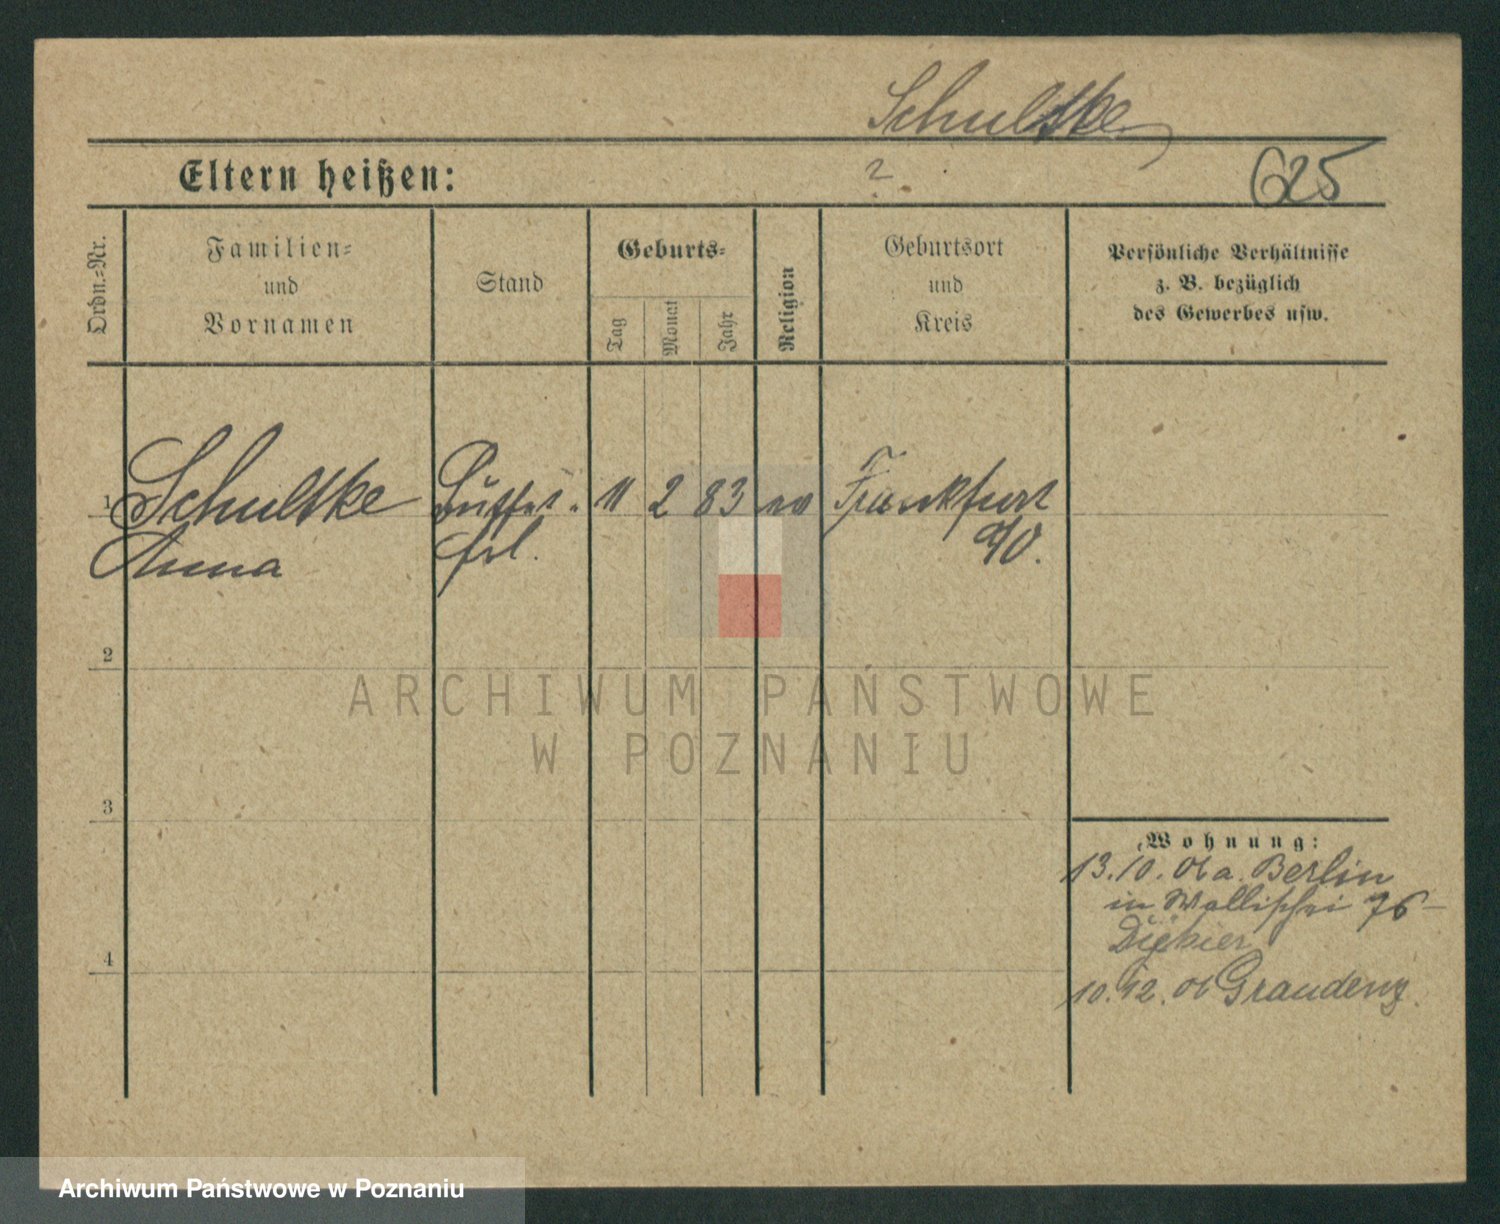 Schultke
Eltern heißen:
?
625
Ordn.=Nr.
Familien=
und
Vornamen
Stand
Geburts=
Tag
Monat
Jahr
Religion
Geburtsort
und
Kreis
Persönliche Verhältnisse
z. B. bezüglich
des Gewerbes usw.
1
Schultke
Anna
Büffet-
frl.
11
2
83
ev
Frankfurt
a/O.
2
3
4
Wohnung:
13.10.06 a. Berlin
in Wallischei 76
10.12.06 Graudenz
ARCHIWUM PAŃSTWOWE
W POZNANIU
Archiwum Państwowe w Poznaniu